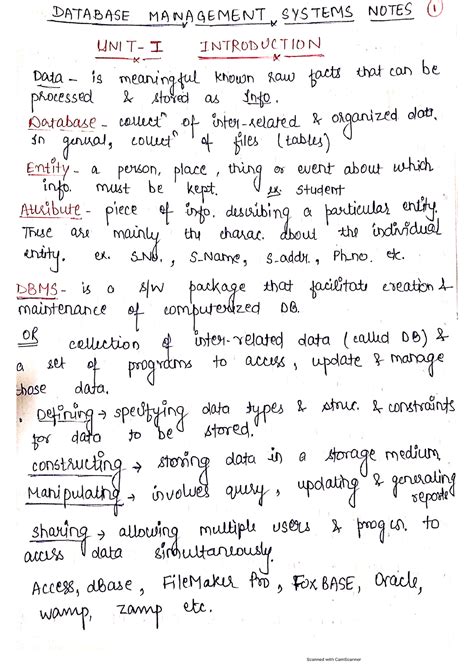 DATABASE MANAGEMENT SYSTEMS NOTES 1
UNIT-I INTRODUCTION
Data - is meaningful known raw facts that can be
processed & stored as Info.
Database - collectⁿ of inter-related & organized data.
In general, collectⁿ of files (tables)
Entity - a person, place, thing or event about which
info. must be kept. ex. student
Attribute - piece of info. describing a particular entity.
These are mainly the charac. about the individual
entity. ex. S.No., S_Name, S_addr., Ph.no. etc.
DBMS - is a s/w package that facilitate creation &
maintenance of computerized DB.
OR
collection of inter-related data (called DB) &
a set of programs to access, update & manage
those data.
. Defining → specifying data types & struc. & constraints
for data to be stored.
constructing → storing data in a storage medium
Manipulating → involves query, updating & generating
reports
sharing → allowing multiple users & progm. to
access data simultaneously.
Access, dbase, FileMaker Pro, FoxBASE, Oracle,
wamp, zamp etc.
Scanned with CamScanner